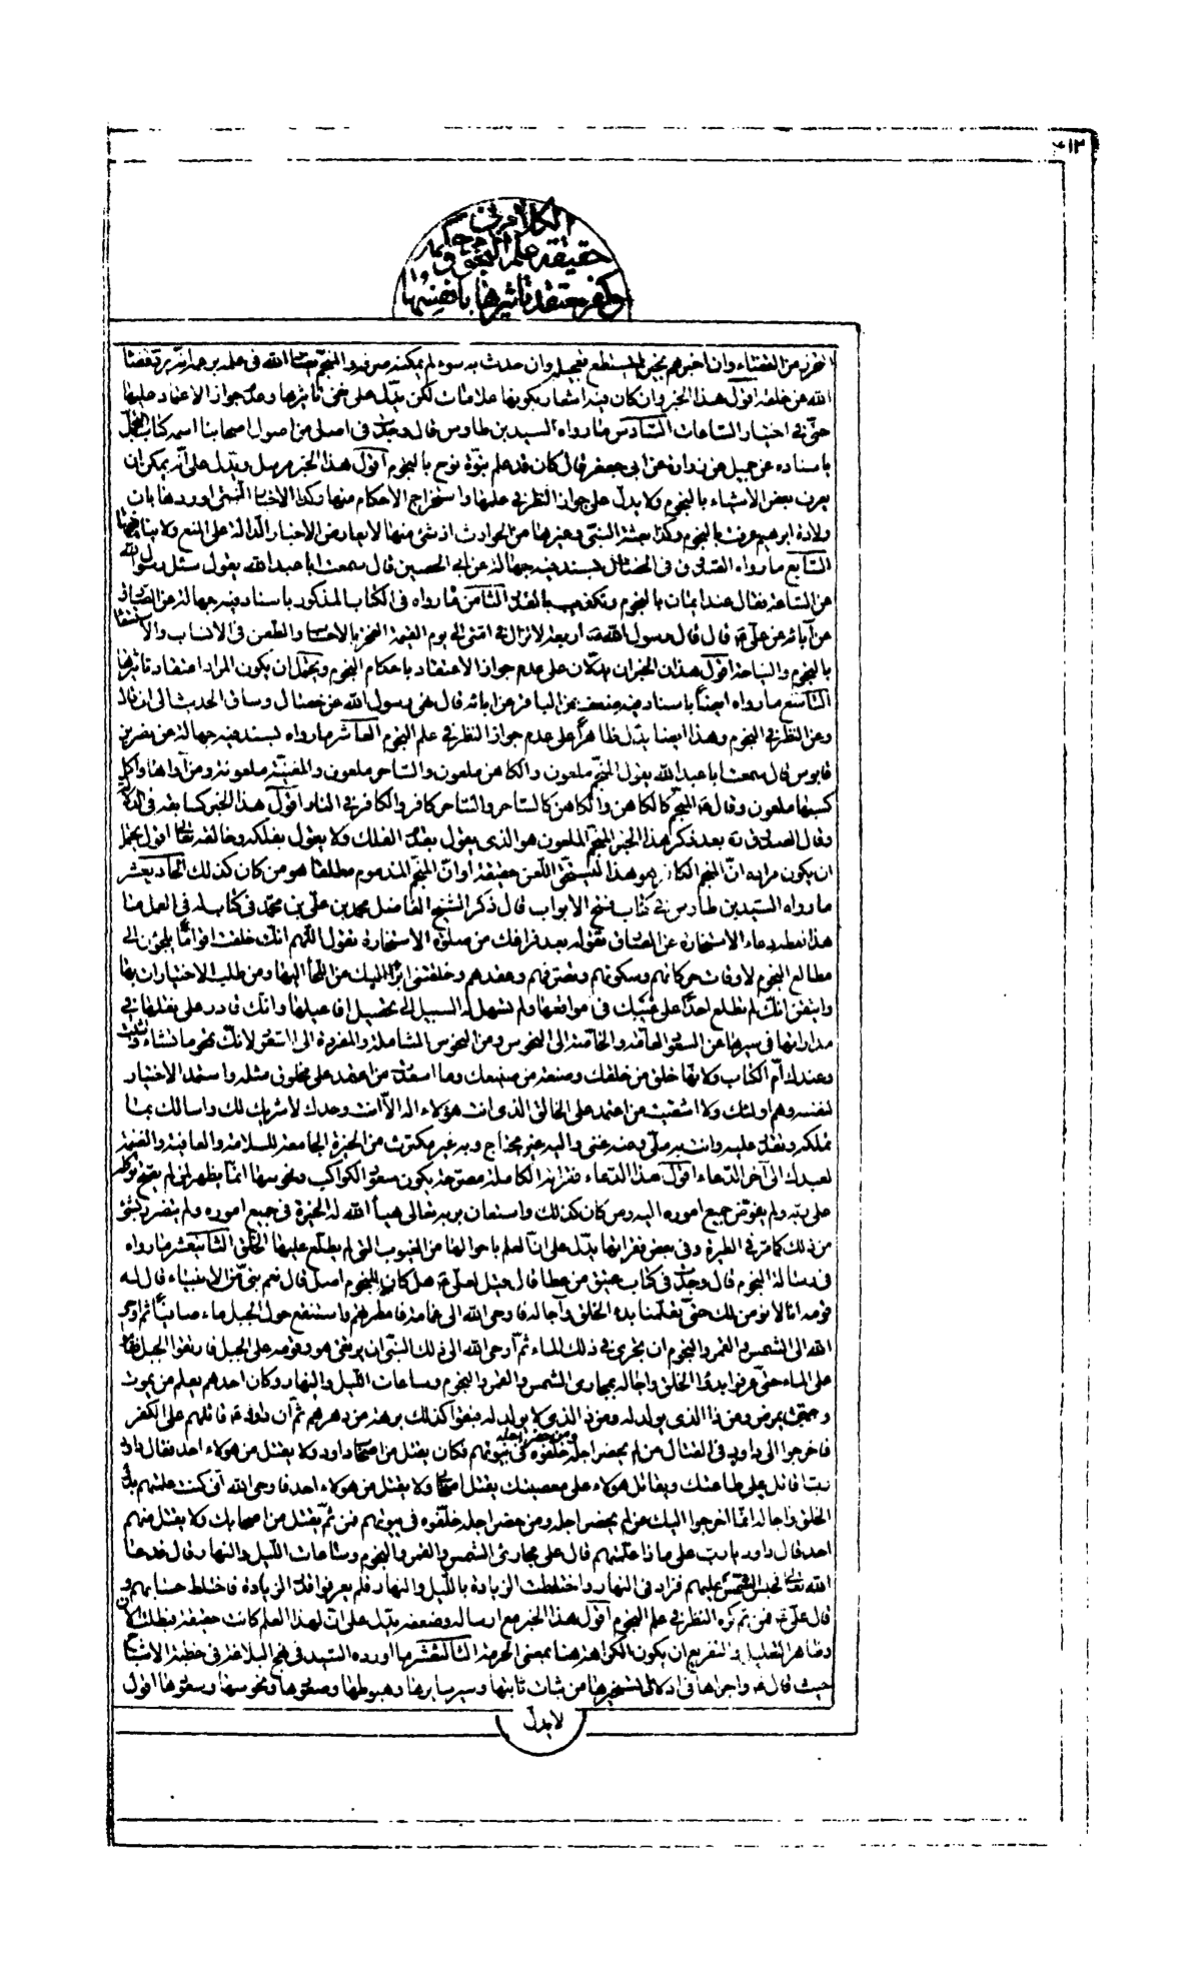 ٤١٢
الكلام في
حقيقة علم النجوم
وكفر معتقد تاثيرها بانفسها
التحرز من القضاء وان اخبر هو بخير لم يستطع تعجيله وان حدث به سوء لم يمكنه صرفه والمنجم يضاد الله في علمه بزعمه انه يرد قضاء
الله عن خلقه اقول هذا الخبر وان كان فيه اشعار بكونها علامات لكن يدل على نفي تاثيرها وعدم جواز الاعتماد عليها
حتى في اختيار الساعات السادس ما رواه السيد بن طاوس قال وجدت في اصل من اصول اصحابنا اسمه كتاب التجمل
باسناده عن جميل عن زرارة عن ابي جعفر قال كان قد علم نبوة نوح بالنجوم اقول هذا الخبر مرسل ويدل على انه يمكن ان
يعرف بعض الاشياء بالنجوم ولا يدل على جواز النظر في علمها واستخراج الاحكام منها وكذا الاخبار التي اوردها بان
ولادة ابراهيم عرفت بالنجوم وكذا بعثة النبي وغيرها من الحوادث اذ شئ منها لا يعارض الاخبار الدالة على المنع ولا ينافيها
السابع ما رواه الصدوق في الخصال بسند فيه جهالة عن ابي الحصين قال سمعت ابا عبد الله يقول سئل رسول الله
عن الساعة فقال عند ايمان بالنجوم وتكذيب بالقدر الثامن ما رواه في الكتاب المذكور باسناد فيه جهالة عن الصادق
عن آبائه عن علي ع قال قال رسول الله ص اربعة لا تزال في امتي الى يوم القيمة الفخر بالاحساب والطعن في الانساب والاستسقاء
بالنجوم والنياحة اقول هذان الخبران يدلان على عدم جواز الاعتقاد باحكام النجوم ويحتمل ان يكون المراد اعتقاد تاثيرها
التاسع ما رواه ايضاً باسناد فيه ضعف عن الباقر عن ابائه قال نهى رسول الله عن خصال وساق الحديث الى ان قال
وعن النظر في النجوم وهذا ايضا يدل ظاهراً على عدم جواز النظر في علم النجوم العاشر ما رواه بسند فيه جهالة عن نصر بن
قابوس قال سمعت ابا عبد الله يقول المنجم ملعون والكاهن ملعون والساحر ملعون والمغنية ملعونة ومن آواها واكل
كسبها ملعون وقال ع المنجم كالكاهن والكاهن كالساحر والساحر كالكافر والكافر في النار اقول هذا الخبر كسابقه في الدلالة
وقال الصدوق ره بعد ذكر هذا الخبر المنجم الملعون هو الذي يقول بقدم الفلك ولا يقول بفلكه وخالقه تعالى اقول يحتمل
ان يكون مراده ان المنجم الكافر هو هذا ليستحق اللعن حقيقة او ان المنجم المذموم مطلقا هو من كان كذلك الحادي عشر
ما رواه السيد بن طاوس في كتاب فتح الابواب قال ذكر الشيخ الفاضل محمد بن علي بن محمد في كتاب له في العمل ما
هذا لفظه دعاء الاستخارة عن الصادق تقوله بعد فراغك من صلوة الاستخارة تقول اللهم انك خلقت اقواماً يلجئون الى
مطالع النجوم لاوقات حركاتهم وسكونهم وتصرفهم وعقدهم وخلقتني ابرأ اليك من اللجأ اليها ومن طلب الاختيارات بها
وايقن انك لم تطلع احداً على غيبك في مواقعها ولم تسهل له السبيل الى تحصيل افاعيلها وانك قادر على نقلها في
مداراتها في سيرها عن السعود العامة والخاصة الى النحوس ومن النحوس الشاملة والمفردة الى السعود لانك تمحو ما تشاء وتثبت
وعندك ام الكتاب ولانها خلق من خلقك وصنعة من صنيعك وما اسعدت من اعتمد على مخلوق مثله واستمد الاختيار
لنفسه وهم اولئك ولا اشقيت من اعتمد على الخالق الذي انت هو لا اله الا انت وحدك لا شريك لك واسالك بما
تملكه وتقدر عليه وانت به ملي وعنه غني واليه غير محتاج وبه غير مكترث من الخيرة الجامعة للسلامة والعافية والغنيمة
لعبدك الى آخر الدعاء اقول هذا الدعاء فقراته الكاملة مصرحة بكون سعود الكواكب ونحوسها انما يظهر لمن لم يصح توكله
على ربه ولم يفوض جميع اموره اليه ومن كان كذلك واستعان بربه تعالى هيأ الله له الخيرة في جميع اموره ولم يتضرر بشئ
من ذلك كما مر في الطيرة وفي بعض فقراتها يدل على ان العلم باحوالها من الغيوب التي لم يطلع عليها الخلق الثاني عشر ما رواه
في رسالة النجوم قال وجدت في كتاب عتيق عن عطا قال قيل لعلي ع هل كان للنجوم اصل قال نعم نبي من الانبياء قال له
قومه انا لا نؤمن لك حتى تعلمنا بدء الخلق وآجاله فاوحى الله الى غمامة فامطرتهم واستنقع حول الجبل ماء صافياً ثم اوحى
الله الى الشمس والقمر والنجوم ان تجري في ذلك الماء ثم اوحى الله الى ذلك النبي ان يرتقي هو وقومه على الجبل فارتقوا الجبل فقاموا
على الماء حتى عرفوا بدؤ الخلق واجاله بمجاري الشمس والقمر والنجوم وساعات الليل والنهار وكان احدهم يعلم متى يموت
ومتى يمرض ومن ذا الذي يولد له ومن ذا الذي لا يولد له فبقوا كذلك برهة من دهرهم ثم ان داود ع قاتلهم على الكفر
فاخرجوا الى داود في القتال من لم يحضر اجله ومن حضر اجله خلفوه في بيوتهم فكان يقتل من اصحاب داود ولا يقتل من هؤلاء احد فقال داود
رب اقاتل على طاعتك ويقاتل هؤلاء على معصيتك يقتل اصحابي ولا يقتل من هؤلاء احد فاوحى الله اني كنت علمتهم بدء
الخلق واجاله انما اخرجوا اليك من لم يحضر اجله ومن حضر اجله خلفوه في بيوتهم فمن ثم يقتل من اصحابك ولا يقتل منهم
احد قال داود يا رب على ماذا علمتهم قال على مجاري الشمس والقمر والنجوم وساعات الليل والنهار قال فدعا
الله تعالى فحبس الشمس عليهم فزاد في النهار واختلطت الزيادة بالليل والنهار فلم يعرفوا قدر الزيادة فاختلط حسابهم و
قال علي ع فمن ثم كره النظر في علم النجوم اقول هذا الخبر مع ارساله وضعفه يدل على ان لهذا العلم كانت حقيقة فبطلت الان
وظاهر التعليل والتفريع ان يكون الكراهة هنا بمعنى الحرمة الثالث عشر ما اورده السيد في نهج البلاغة في خطبة الاشباح
حيث قال ع واجراها في اذلال تسخيرها من ثبات ثابتها ومسير سايرها وهبوطها وصعودها ونحوسها وسعودها اقول
لا يدل